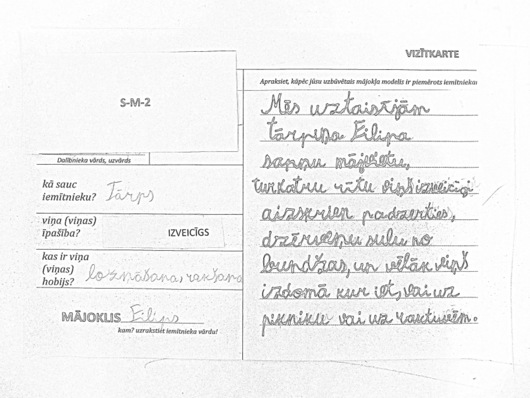 VIZĪTKARTE
S-M-2
Dalībnieka vārds, uzvārds
kā sauc iemītnieku? Tārps
viņa (viņas) īpašība? IZVEICĪGS
kas ir viņa (viņas) hobijs? ložņāšana, rakšana
MĀJOKLIS Filips
kam? uzrakstiet iemītnieka vārdu!
Apraksiet, kāpēc jūsu uzbūvētais mājokļa modelis ir piemērots iemītniekam
Mēs uztaisījām
tārpiņa Filipa
sapņu mājvietu,
turkatru rītu viņš izveicīgi
aizskrien padzerties,
dzērveņu sulu no
bundžas, un vēlāk viņš
izdomā kur iet, vai uz
pikniku vai uz rakstuvēm.